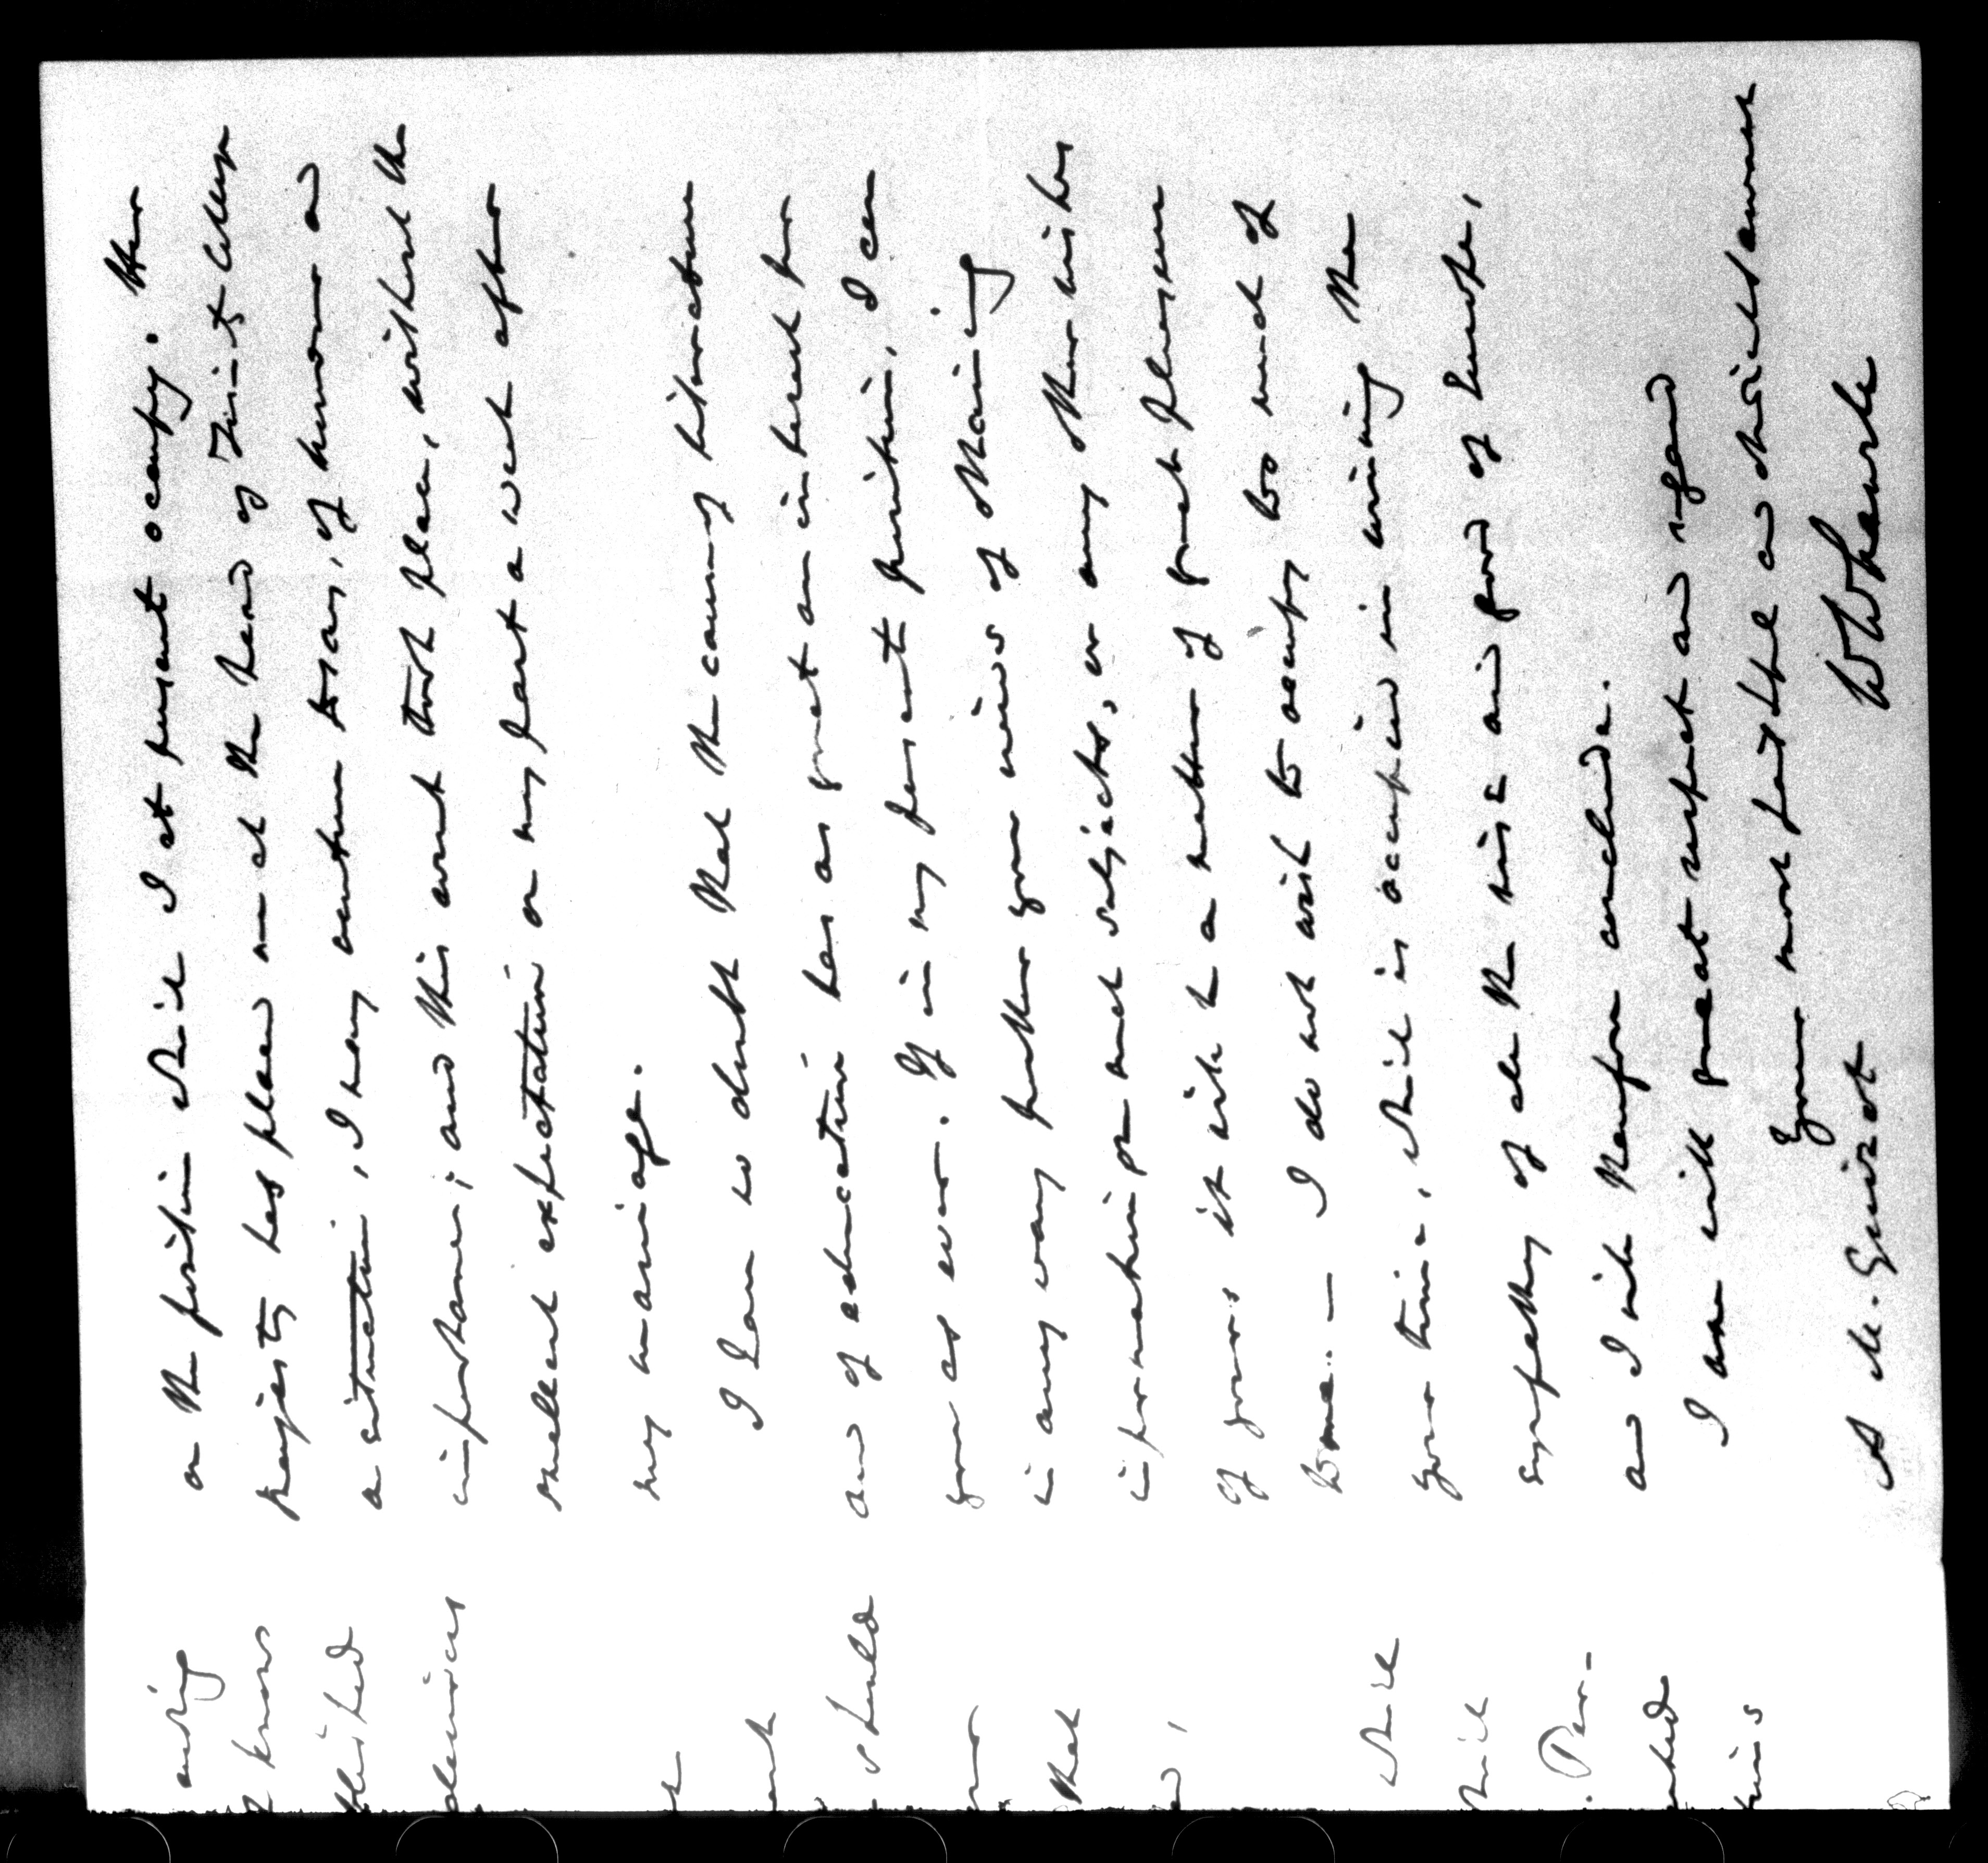 on the position which I at present occupy. Her
Majesty has placed me at the head of Trinity College
a situation, I may venture to say, of honour and
importance; and this event took place, without the
smallest expectation on my part a week after
my marriage.
I have no doubt that the cause of literature
and of education has as great an interest for
you as ever. If in my present position, I can
in any way further your views of obtaining
information on such subjects, or any other wishes
of yours it will be a matter of great pleasure
to me. — I do not wish to occupy too much of
your time, which is occupied in winning the
sympathy of all the wise and good of Europe,
and I will therefore conclude.
I am with great respect and regard
Your most faithful and obedient servant
W Whewell
A M. Guizot
know
should
that
which